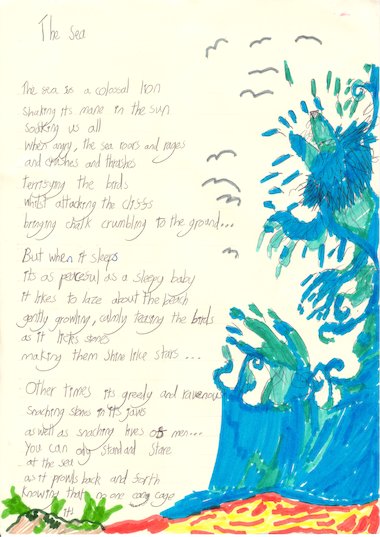 The Sea
The sea is a colossal lion
Shaking its mane in the sun
Soaking us all
When angry, the sea roars and rages
and crashes and thrashes
terrifying the birds
whilst attacking the cliffs
bringing chalk crumbling to the ground...
But when it sleeps
its as peaceful as a sleepy baby
it likes to laze about the beach
gently growling, calmly teasing the birds
as it licks stones
making them shine like stars ...
Other times its greedy and ravenous
Snaching stones in its jaws
as well as snaching lives of men...
You can only stand and stare
at the sea
as it prowls back and forth
Knowing that no one can cage
it!